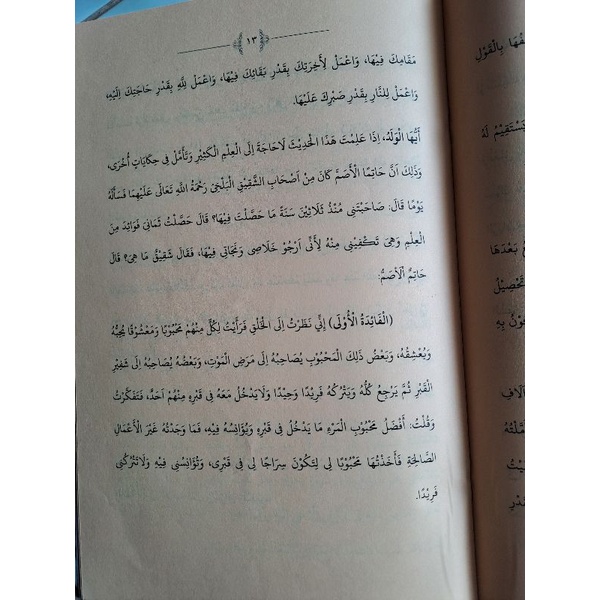 ١٣
مَقَامِكَ فِيْهَا، وَاعْمَلْ لِأٰخِرَتِكَ بِقَدْرِ بَقَائِكَ فِيْهَا، وَاعْمَلْ لِلّٰهِ بِقَدْرِ حَاجَتِكَ اِلَيْهِ،
وَاعْمَلْ لِلنَّارِ بِقَدْرِ صَبْرِكَ عَلَيْهَا.
اَيُّهَا الْوَلَدُ، اِذَا عَلِمْتَ هٰذَا الْحَدِيْثَ لَاحَاجَةَ اِلَى الْعِلْمِ الْكَثِيْرِ وَتَأَمَّلْ فِى حِكَايَاتٍ أُخْرَى،
وَذٰلِكَ اَنَّ حَاتِمًا الْأَصَمَّ كَانَ مِنْ اَصْحَابِ الشَّقِيْقِ الْبَلْخِيِّ رَحْمَةُ اللهِ تَعَالَى عَلَيْهِمَا فَسَأَلَهُ
يَوْمًا قَالَ: صَاحَبْتَنِى مُنْذُ ثَلَاثِيْنَ سَنَةً مَا حَصَّلْتَ فِيْهَا؟ قَالَ حَصَّلْتُ ثَمَانِىَ فَوَائِدَ مِنَ
الْعِلْمِ وَهِىَ تَكْفِيْنِى مِنْهُ لِأَنِّى اَرْجُوْ خَلَاصِى وَنَجَاتِى فِيْهَا، فَقَالَ شَقِيْقٌ مَا هِىَ؟ قَالَ
حَاتِمٌ الْأَصَمُّ:
(الْفَائِدَةُ الْأُوْلَى) اِنِّي نَظَرْتُ اِلَى الْخَلْقِ فَرَأَيْتُ لِكُلٍّ مِنْهُمْ مَحْبُوْبًا وَمَعْشُوْقًا يُحِبُّهُ
وَيَعْشِقُهُ، وَبَعْضُ ذٰلِكَ الْمَحْبُوْبِ يُصَاحِبُهُ اِلَى مَرَضِ الْمَوْتِ، وَبَعْضُهُ يُصَاحِبُهُ اِلَى شَفِيْرِ
الْقَبْرِ ثُمَّ يَرْجِعُ كُلُّهُ وَيَتْرُكُهُ فَرِيْدًا وَحِيْدًا وَلَايَدْخُلُ مَعَهُ فِى قَبْرِهِ مِنْهُمْ اَحَدٌ، فَتَفَكَّرْتُ
وَقُلْتُ: أَفْضَلُ مَحْبُوْبِ الْمَرْءِ مَا يَدْخُلُ فِى قَبْرِهِ وَيُؤَانِسُهُ فِيْهِ، فَمَا وَجَدْتُهُ غَيْرَ الْأَعْمَالِ
الصَّالِحَةِ فَأَخَذْتُهَا مَحْبُوْبًا لِى لِتَكُوْنَ سِرَاجًا لِى فِى قَبْرِى، وَتُؤَانِسُنِى فِيْهِ وَلَاتَتْرُكُنِى
فَرِيْدًا.
بِالْقَوْلِ
يَسْتَقِيْمُ لَهُ
بَعْدَهَا
تَحْصِيْلُ
بِهِ